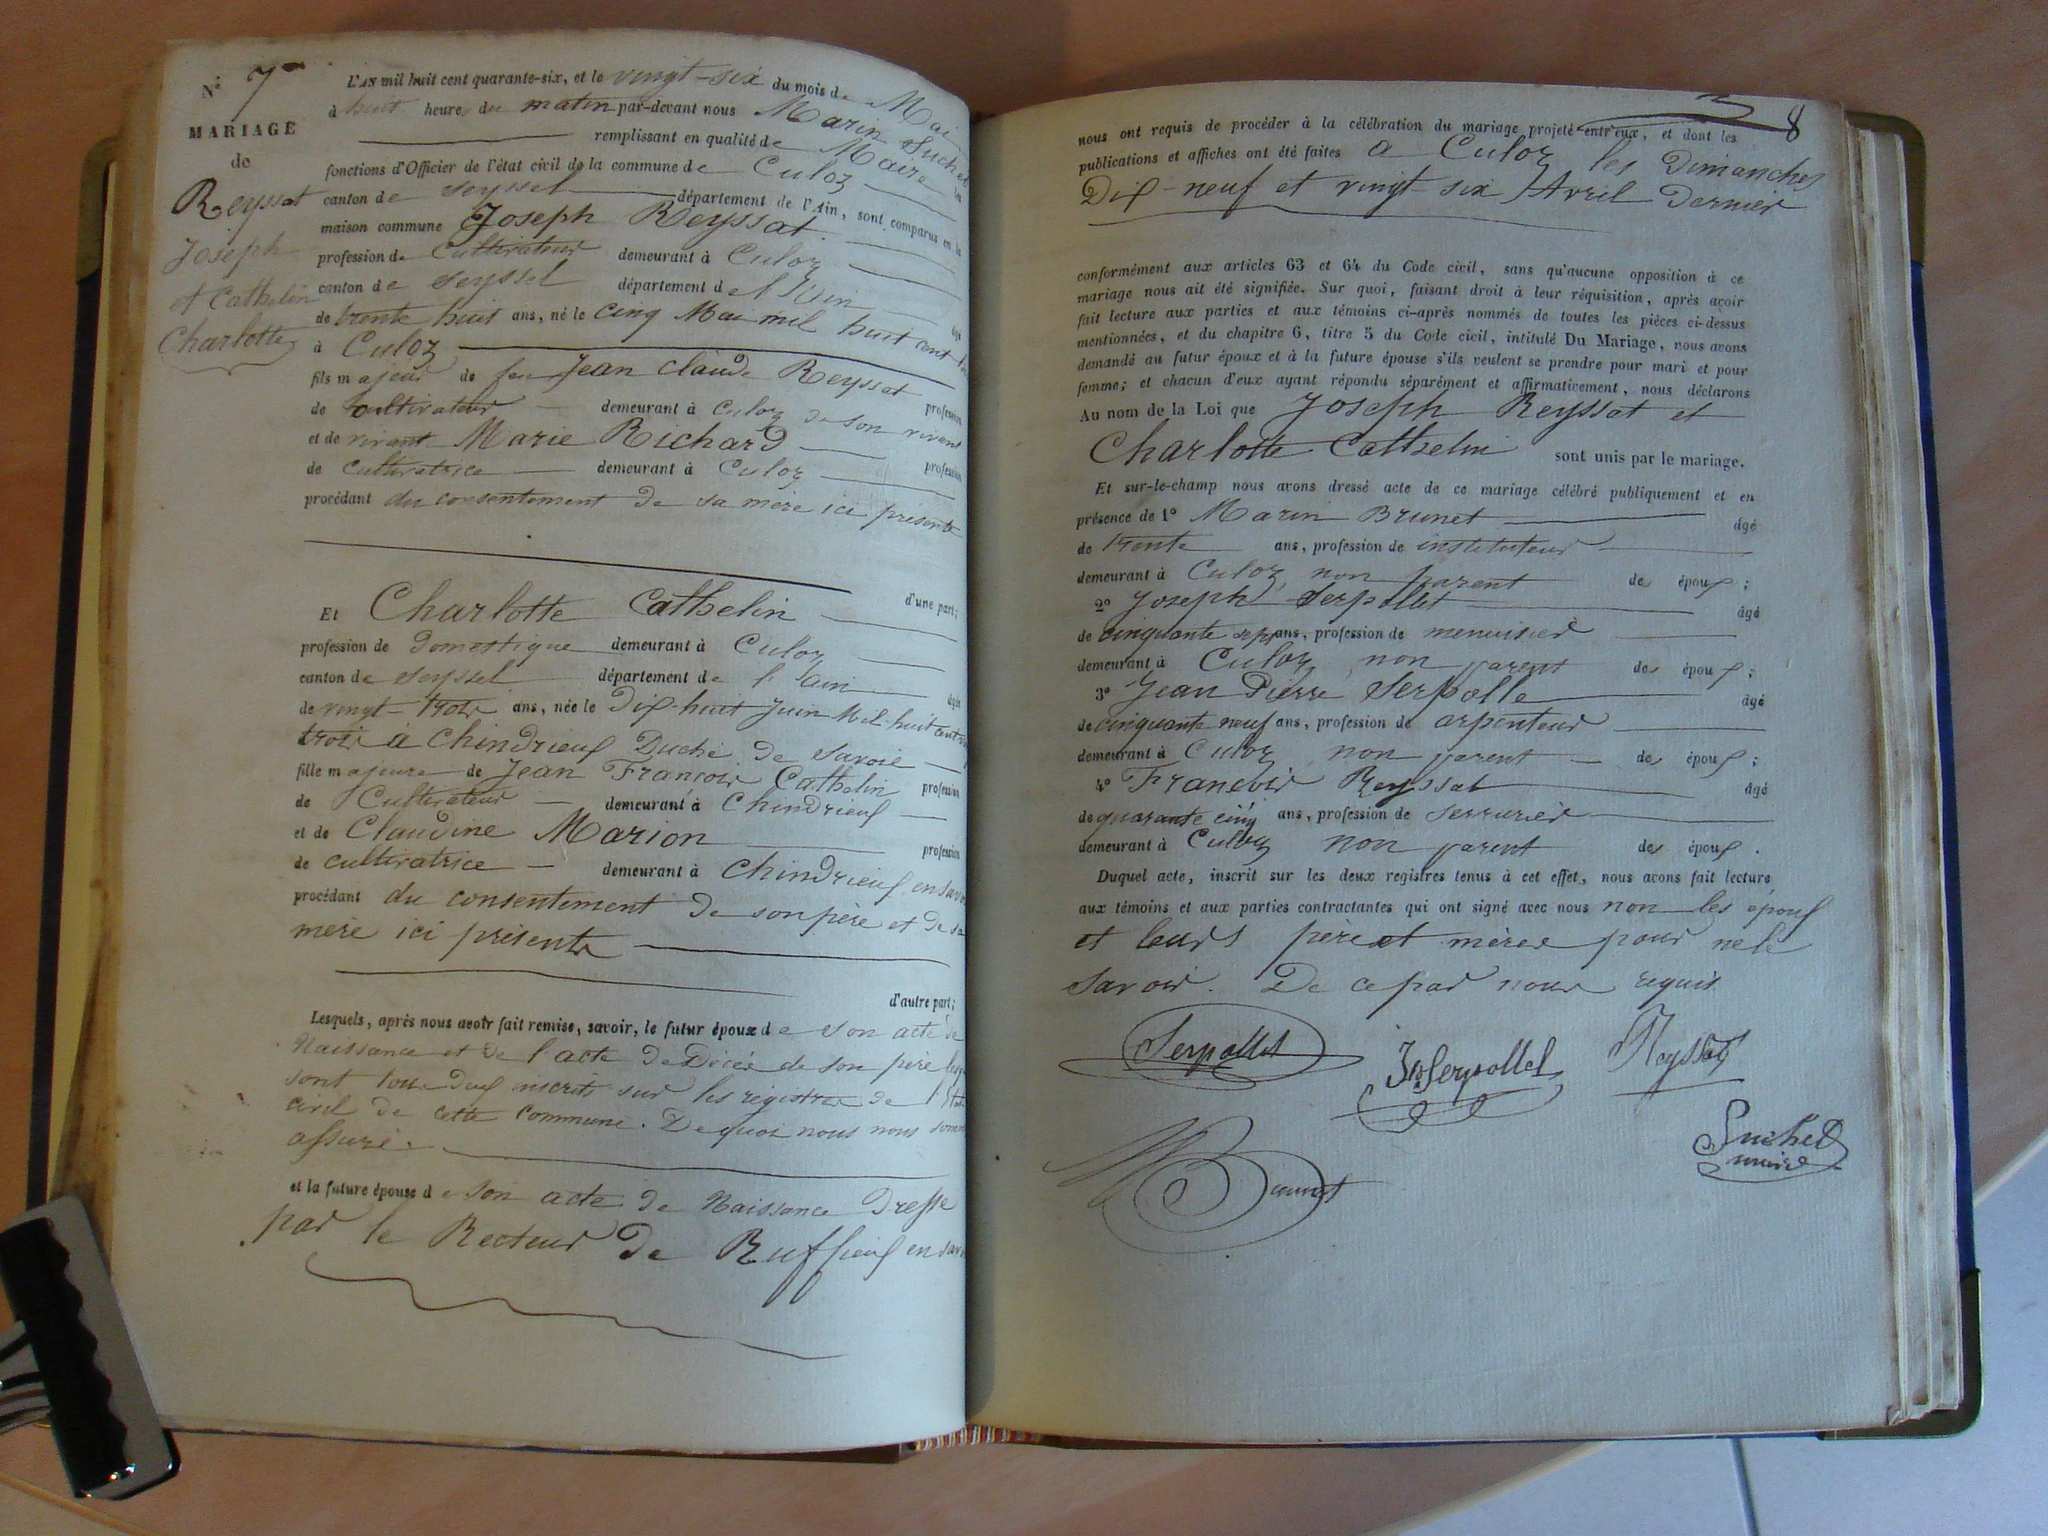 N° 7
MARIAGE
de
Reyssat
Joseph
et Cathelin
Charlotte
L'AN mil huit cent quarante-six, et le vingt-six du mois de Mai
à huit heures du matin par-devant nous Marin Suchet
remplissant en qualité de Maire les
fonctions d'Officier de l'état civil de la commune de Culoz
canton de Seyssel département de l'Ain, sont comparus en la
maison commune Joseph Reyssat
profession de Cultivateur demeurant à Culoz
canton de Seyssel département de l'Ain âgé
de trente huit ans, né le cinq Mai mil huit cent
à Culoz
fils majeur de feu Jean Claude Reyssat profession
de cultivateur demeurant à Culoz de son vivant
et de vivant Marie Richard profession
de cultivatrice demeurant à Culoz
procédant du consentement de sa mère ici présente
d'une part;
Et Charlotte Cathelin
profession de Domestique demeurant à Culoz
canton de Seyssel département de l'ain âgée
de vingt-trois ans, née le Dix-huit Juin Mil-huit cent vingt
trois à Chindrieux Duché de Savoie
fille majeure de Jean François Cathelin profession
de Cultivateur demeurant à Chindrieux
et de Claudine Marion profession
de cultivatrice demeurant à Chindrieux en Savoie
procédant du consentement de son père et de sa
mère ici présents
d'autre part;
Lesquels, après nous avoir fait remise, savoir, le futur époux de son acte de
Naissance et de l'acte de Décès de son père lesquels
sont tous deux inscrits sur les registres de l'Etat
civil de cette commune. De quoi nous nous sommes
assuré.
et la future épouse de son acte de Naissance Dressé
par le Recteur de Ruffieux en Savoie
8
nous ont requis de procéder à la célébration du mariage projeté entr'eux, et dont les
publications et affiches ont été faites à Culoz les Dimanches
Dix-neuf et vingt-six Avril Dernier
conformément aux articles 63 et 64 du Code civil, sans qu'aucune opposition à ce
mariage nous ait été signifiée. Sur quoi, faisant droit à leur réquisition, après avoir
fait lecture aux parties et aux témoins ci-après nommés de toutes les pièces ci-dessus
mentionnées, et du chapitre 6, titre 5 du Code civil, intitulé Du Mariage, nous avons
demandé au futur époux et à la future épouse s'ils veulent se prendre pour mari et pour
femme; et chacun d'eux ayant répondu séparément et affirmativement, nous déclarons
Au nom de la Loi que Joseph Reyssat et
Charlotte Cathelin sont unis par le mariage.
Et sur-le-champ nous avons dressé acte de ce mariage célébré publiquement et en
présence de 1° Marin Brunet âgé
de trente ans, profession de instituteur
demeurant à Culoz non parent des époux;
2° Joseph Serpollet âgé
de cinquante sept ans, profession de menuisier
demeurant à Culoz non parent des époux;
3° Jean Pierre Serpolle âgé
de cinquante neuf ans, profession de arpenteur
demeurant à Culoz non parent des époux;
4° François Reyssat âgé
de quarante cinq ans, profession de serrurier
demeurant à Culoz non parent des époux.
Duquel acte, inscrit sur les deux registres tenus à cet effet, nous avons fait lecture
aux témoins et aux parties contractantes qui ont signé avec nous non les époux
et leurs père et mères pour ne le
savoir. De ce par nous requis
Serpollet
Jh Serpollet
Reyssat
Suchet
maire
Brunet